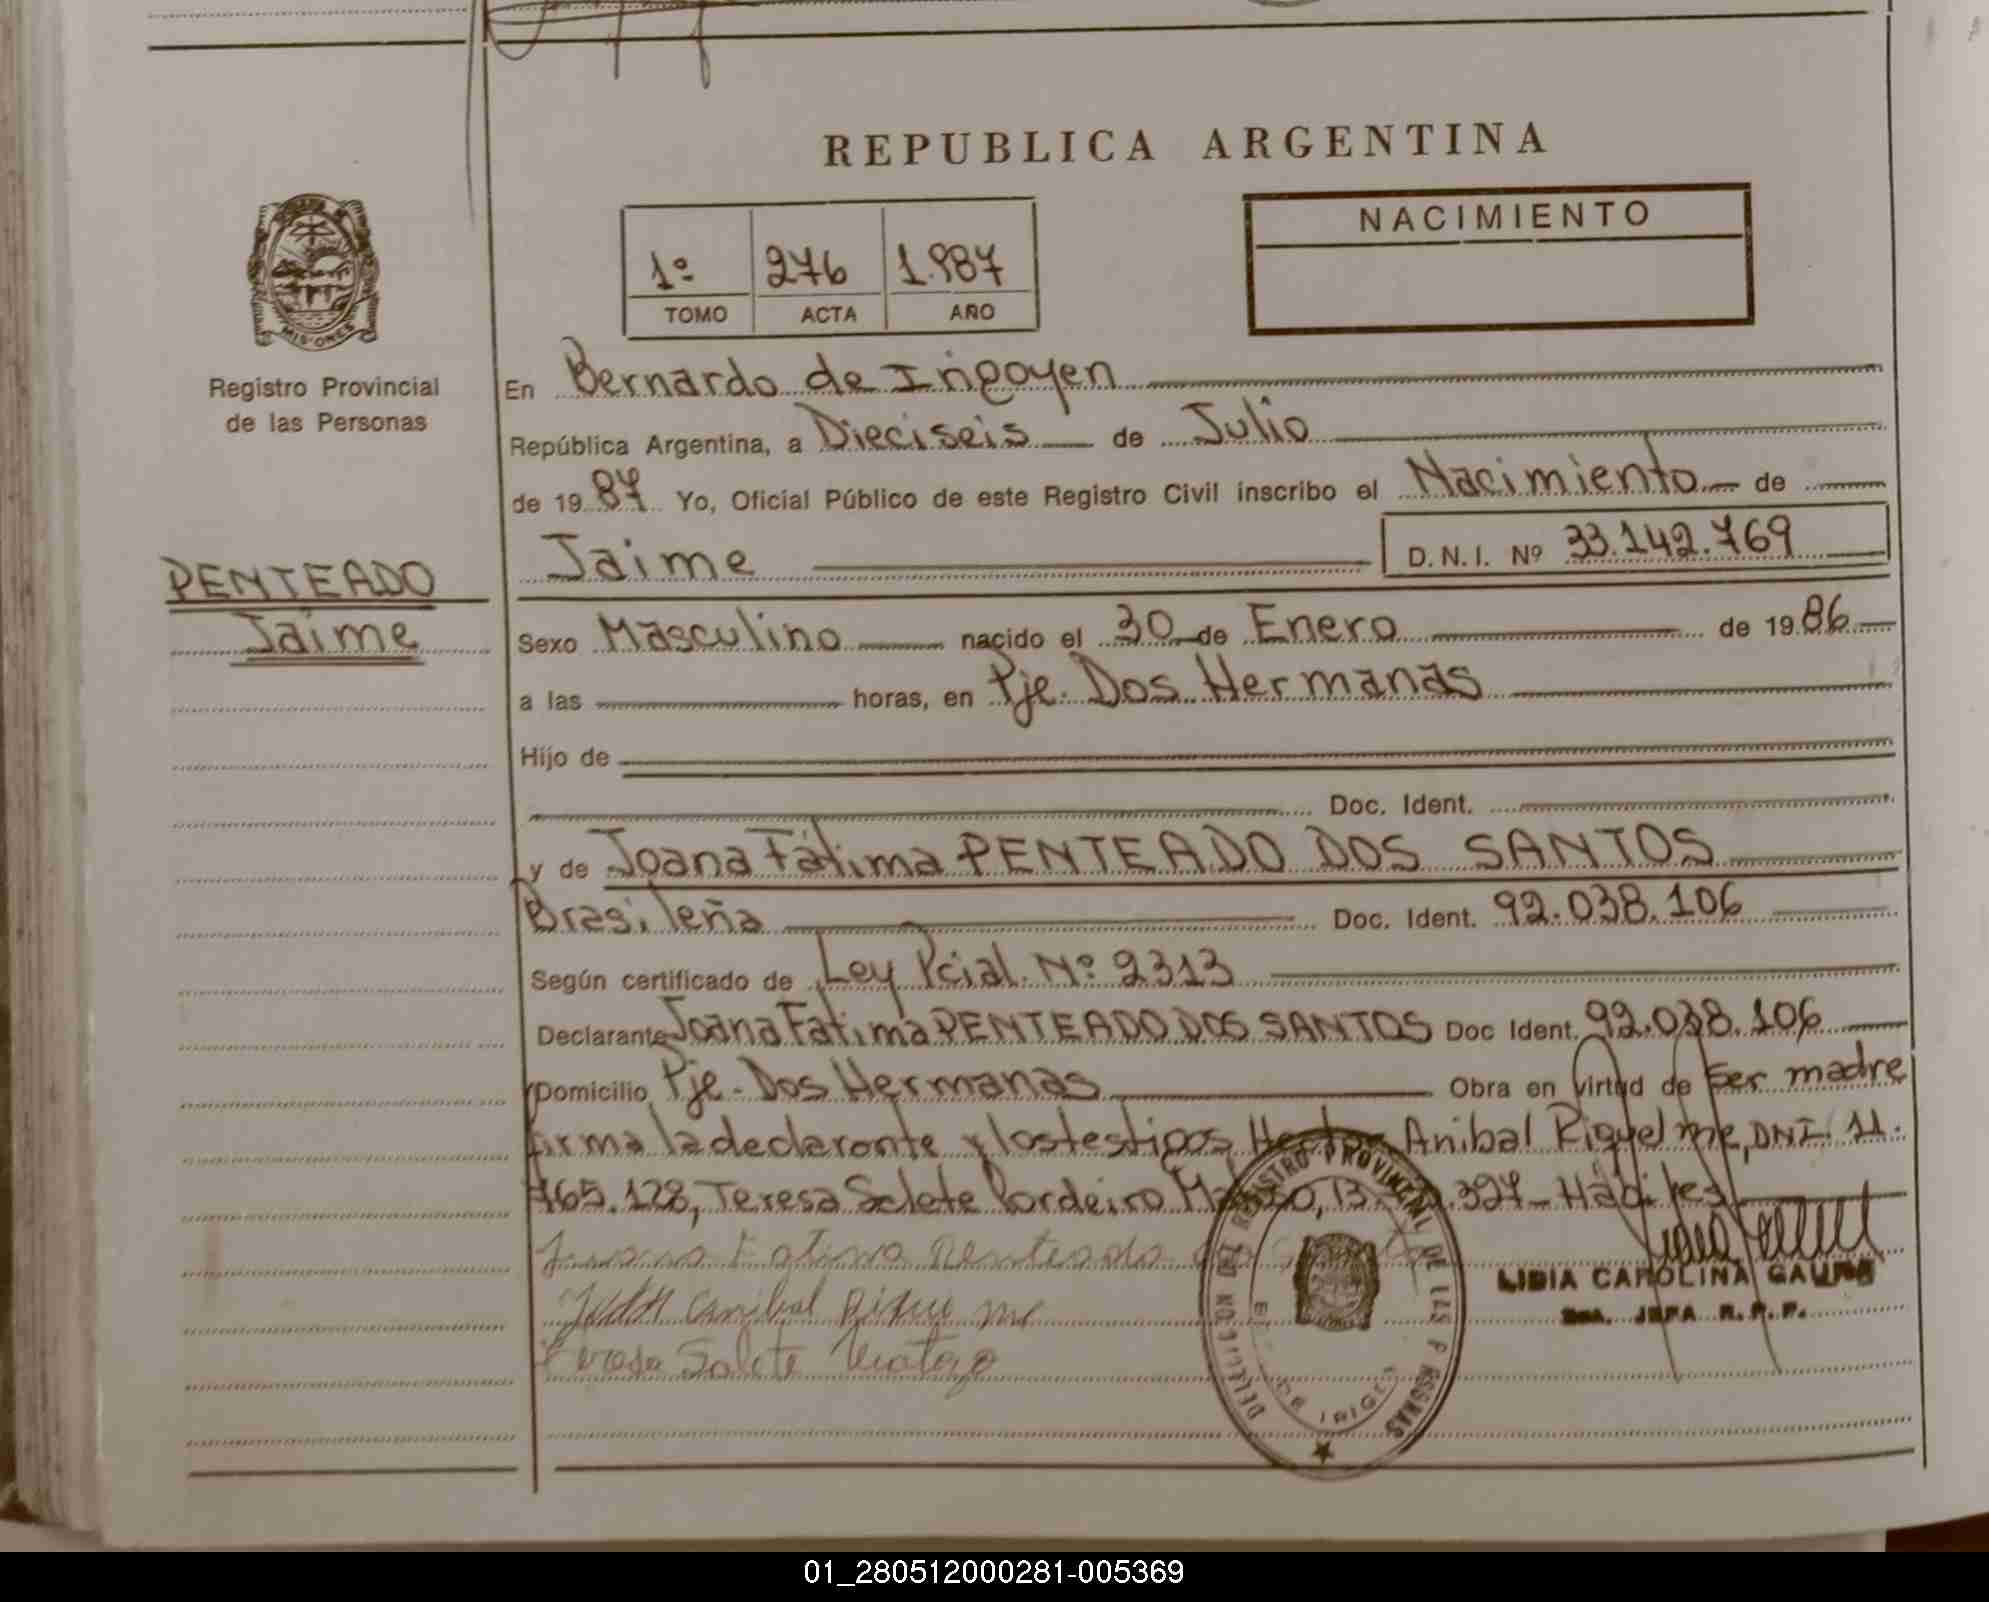 REPUBLICA ARGENTINA
NACIMIENTO
1º 276 1.987
TOMO ACTA AÑO
MISIONES
Registro Provincial
de las Personas
En Bernardo de Irigoyen
República Argentina, a Dieciseis de Julio
de 1987 Yo, Oficial Público de este Registro Civil inscribo el Nacimiento de
Jaime D.N.I. Nº 33.142.769
PENTEADO
Jaime
Sexo Masculino nacido el 30 de Enero de 1986
a las horas, en Pje. Dos Hermanas
Hijo de
Doc. Ident.
y de Joana Fátima PENTEADO DOS SANTOS
Brasileña Doc. Ident. 92.038.106
Según certificado de Ley Pcial. Nº 2313
Declarante Joana Fatima PENTEADO DOS SANTOS Doc Ident. 92.038.106
Domicilio Pje. Dos Hermanas Obra en virtud de Ser madre
firma la declarante y los testigos Hector Anibal Riquelme, DNI. 11.
465.128, Teresa Salete Cordeiro 13. .327 Hábiles
Juana Fatima Penteado dos
Anibal
Teresa Salete
DELEGACION DEL REGISTRO PROVINCIAL DE LAS PERSONAS
DE IRIGOYEN
LIDIA CAROLINA
JEFA R.P.P.
01_280512000281-005369